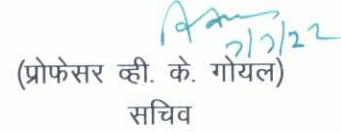 7/7/22
(प्रोफेसर व्ही. के. गोयल)
सचिव